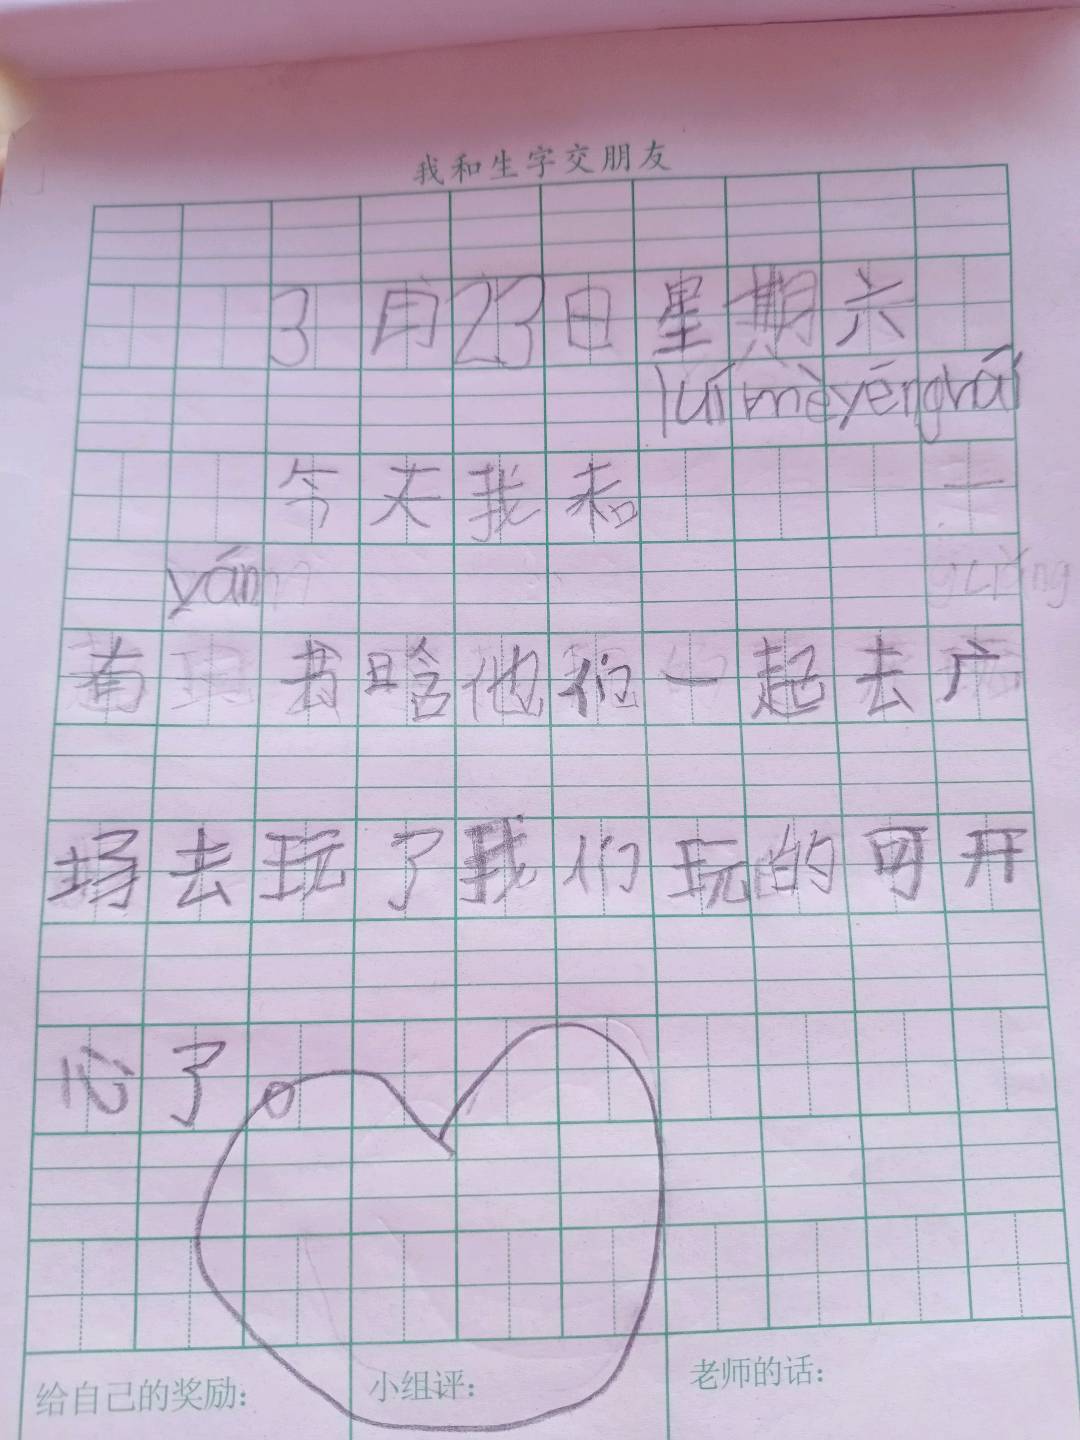 我和生字交朋友
3月23日星期六
今天我和 一
yán
他们一起去广
场去玩了我们玩的可开
心了。
给自己的奖励: 小组评: 老师的话: